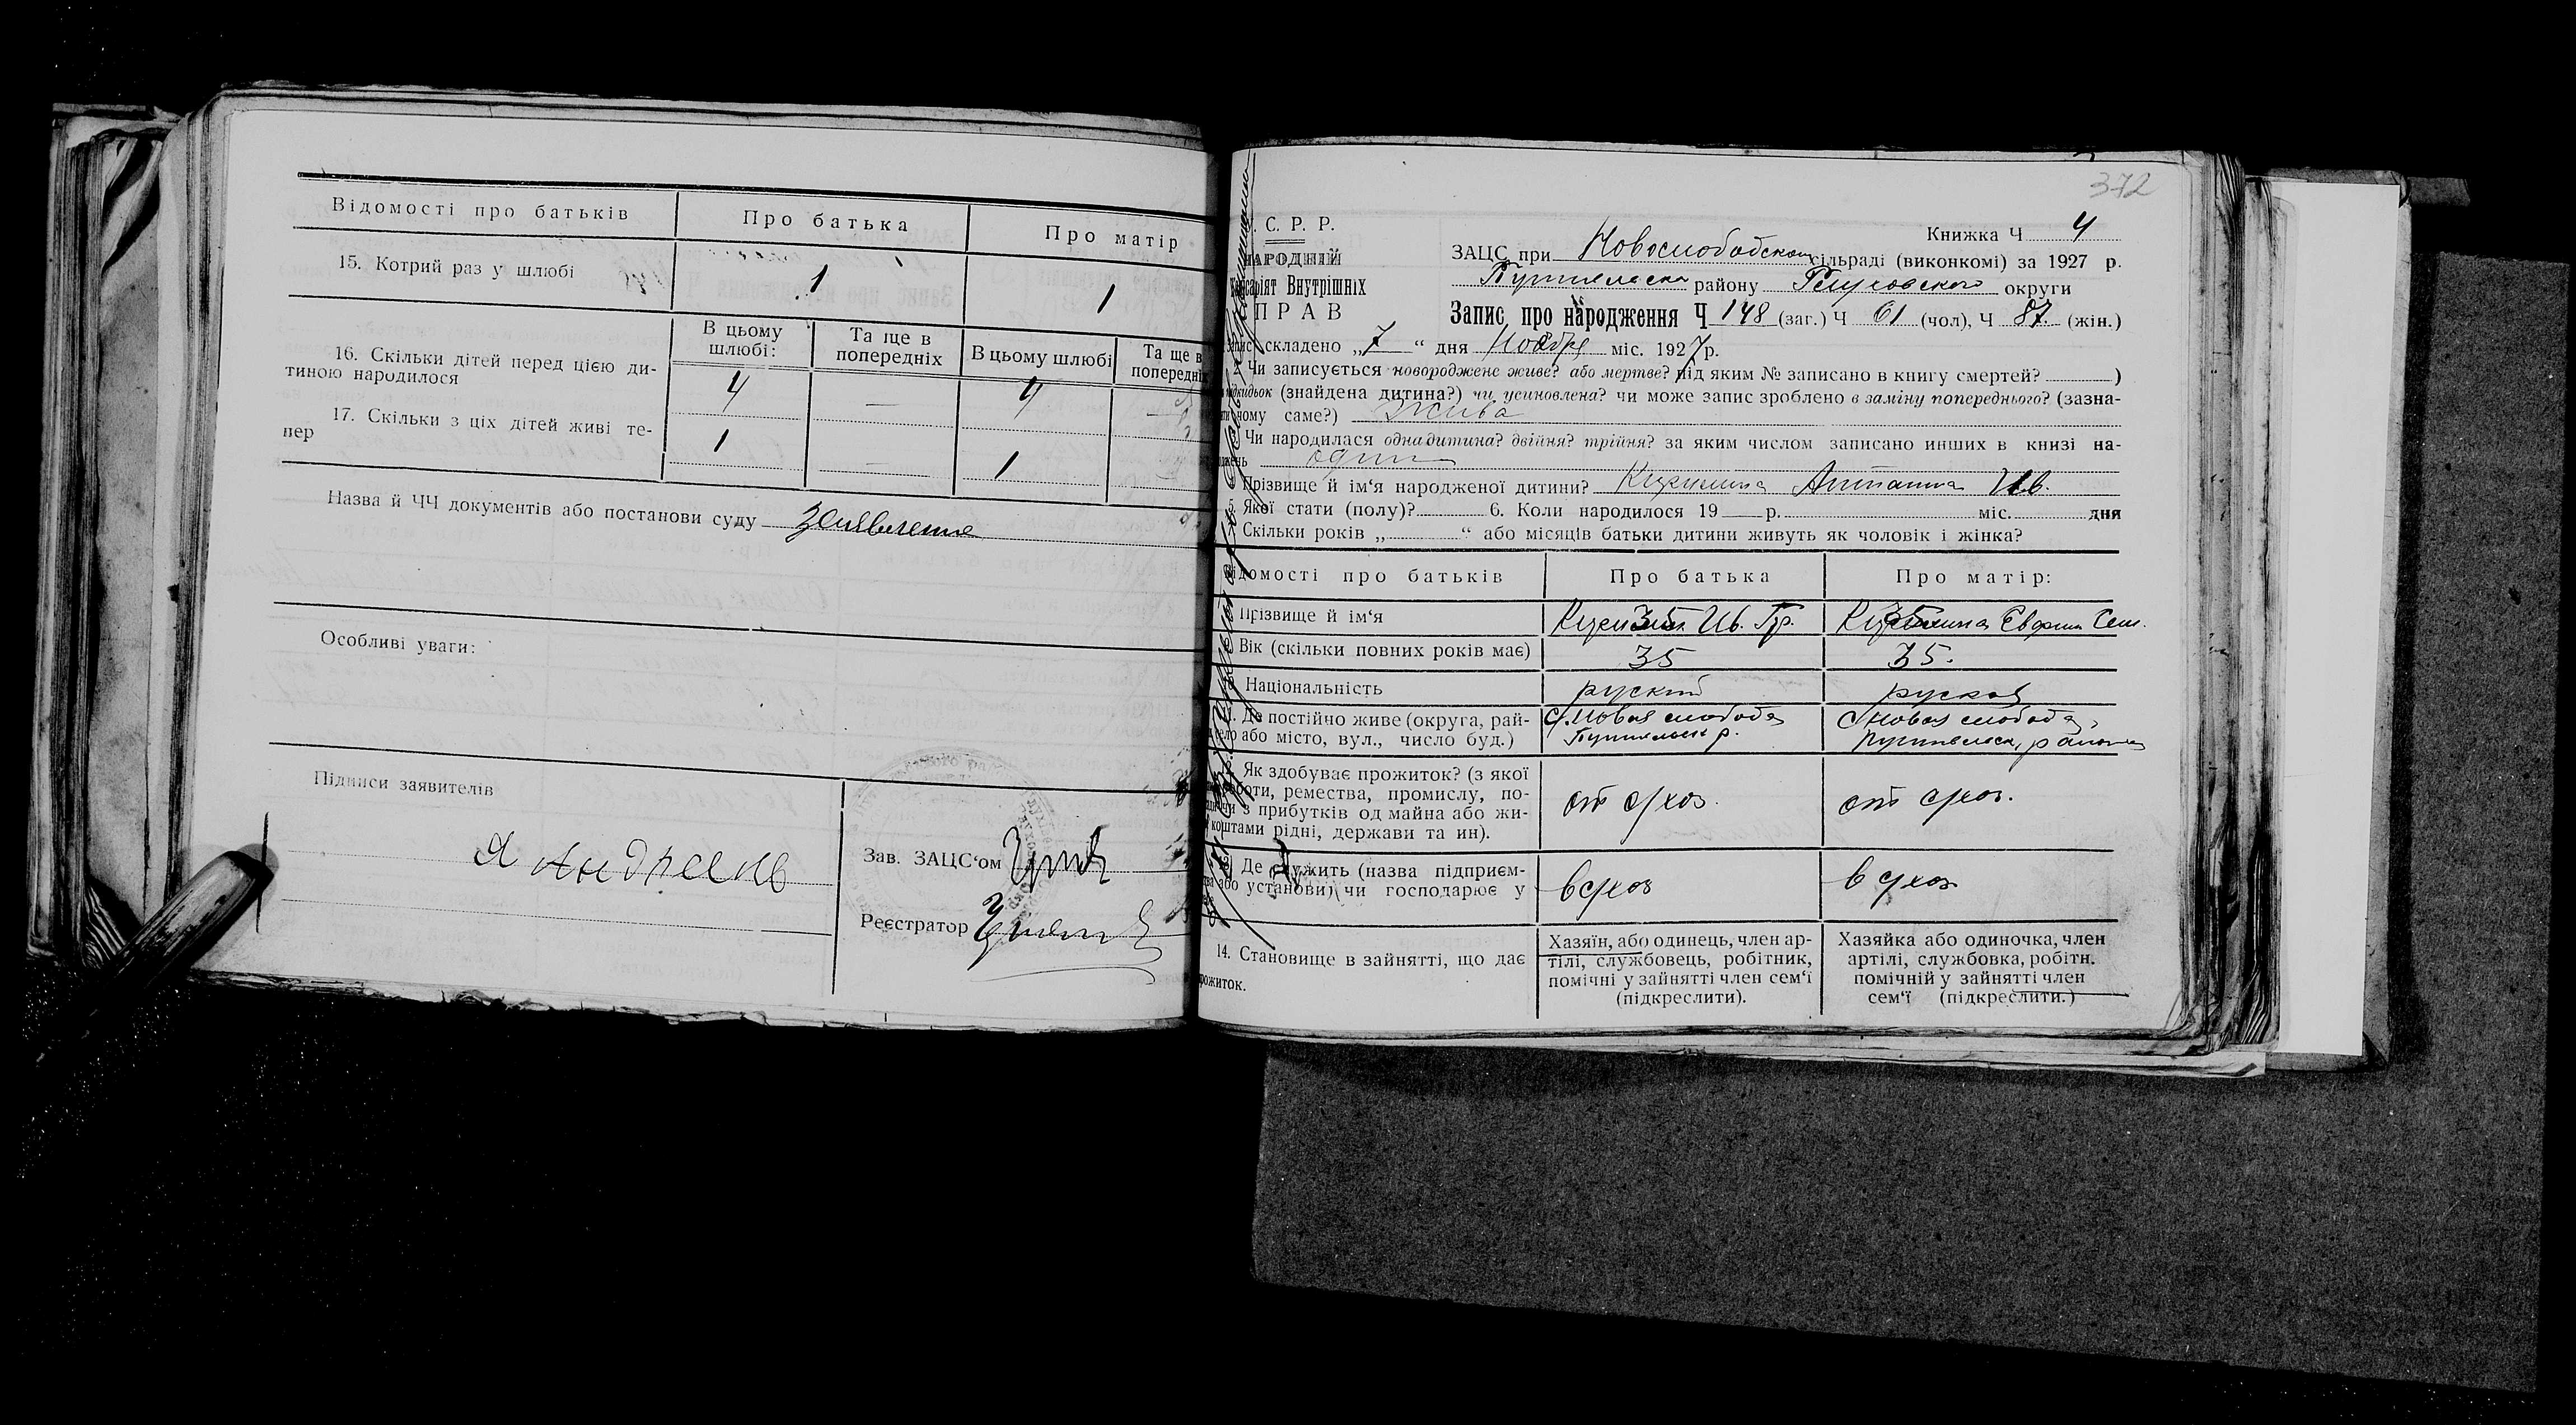 Відомості про батьків
Про батька
Про матір
15. Котрий раз у шлюбі
1
1
В цьому шлюбі:
Та ще в попередніх
В цьому шлюбі
Та ще в попередніх
16. Скільки дітей перед цією ди-
тиною народилося
4
—
4
—
17. Скільки з ціх дітей живі те-
пер
1
—
1
Назва й ЧЧ документів або постанови суду заявление
Особливі уваги:
Підписи заявителів
Я Андреев
Зав. ЗАЦС‘ом
Реєстратор
372
С. Р. Р.
Книжка Ч 4
НАРОДНІЙ
ЗАЦС при Новослободском сільраді (виконкомі) за 1927 р.
Внутрішніх
Путивльска району Глуховского округи
ПРАВ
Запис про народження Ч 148 (заг.) Ч 61 (чол), Ч 87. (жін.)
складено „7“ дня Ноября міс. 1927 р.
2. Чи записується новороджене живе? або мертве? під яким № записано в книгу смертей? )
(знайдена дитина?) чи усиновлена? чи може запис зроблено в заміну попереднього? (зазна-
чому саме?) Жива
Чи народилася одна дитина? двійня? трійня? за яким числом записано инших в книзі на-
один
Прізвище й ім‘я народженої дитини? Ив.
5. Якої стати (полу)? 6. Коли народилося 19 р. міс. дня
Скільки років „ “ або місяців батьки дитини живуть як чоловік і жінка?
Відомості про батьків
Про батька
Про матір:
Прізвище й ім‘я
Ив. Гр.
Сем.
Вік (скільки повних років має)
35
35.
Національність
руский
руская
11. Де постійно живе (округа, рай-
село або місто, вул., число буд.)
с/. Новая слобода
Путивльск р.
с Новая слобода,
Путивльск, района
Як здобуває прожиток? (з якої
роботи, ремества, промислу, по-
чи з прибутків од майна або жи-
коштами рідні, держави та ин).
от с/хоз.
от с/хоз.
Де служить (назва підприєм-
або установи) чи господарює у
в с/хоз
в с/хоз
14. Становище в зайнятті, що дає
прожиток.
Хазяїн, або одинець, член ар-
тілі, службовець, робітник,
помічні у зайнятті член сем‘ї
(підкреслити).
Хазяйка або одиночка, член
артілі, службовка, робітн.
помічній у зайнятті член
сем‘ї (підкреслити.)